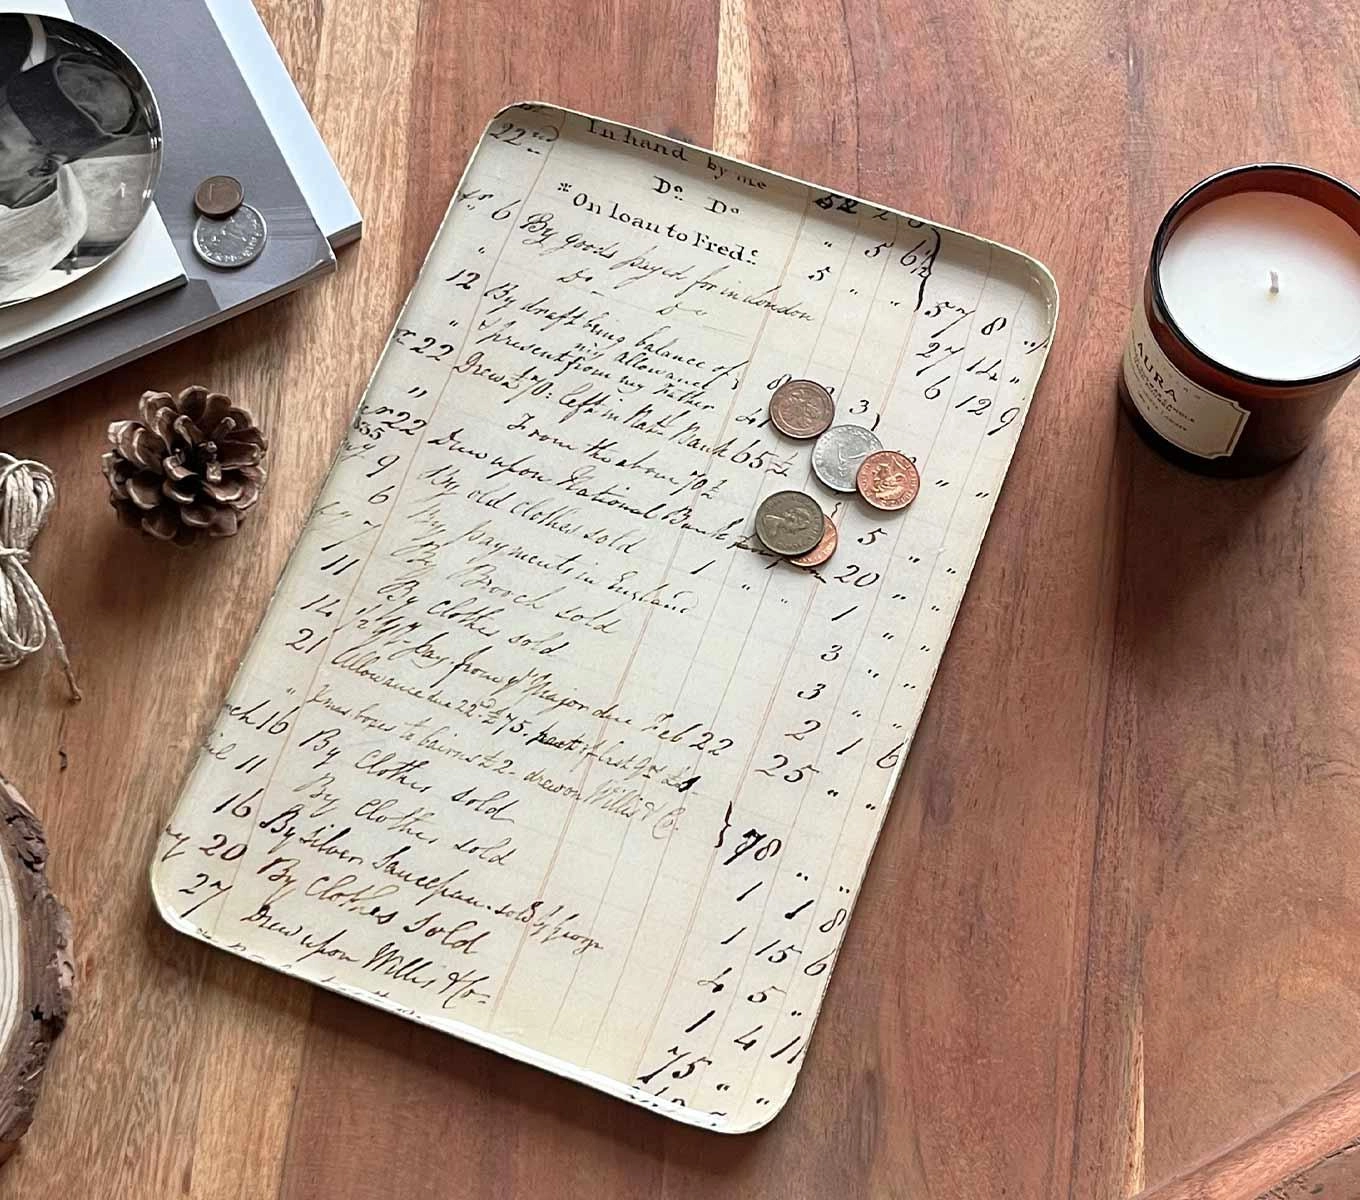 22nd In hand by me 52 2 8
Do Do " 5 6½
* On loan to Fredc 5 " " 57 8 "
6 By goods payed for in London 27 14 "
" Do Do 6 12 9
12 By draft being balance of
my allowance
" present from my Father
22 Drew £70: left in Natn Bank 65 " "
" From the above 70£ 5 " "
22 Drew upon National Bank 20 " "
9 By old Clothes sold 1 " " 1 " "
6 By payments in England 3 " "
7 By Brooch sold 3 " "
11 By Clothes sold 2 1 6
14 pay from ye Major due Feb 22 25 " "
21 Allowance due 22nd £75. part of last
" Xmas boxes to bairns £2 - drew on Willis & Co. 78 " "
ch 16 By Clothes sold 1 1 8
il 11 By Clothes sold 1 15 6
16 By Silver Saucepan sold 4 5 "
y 20 By Clothes Sold 1 4 11
27 Drew upon Willis & Co- 75 " "
AURA